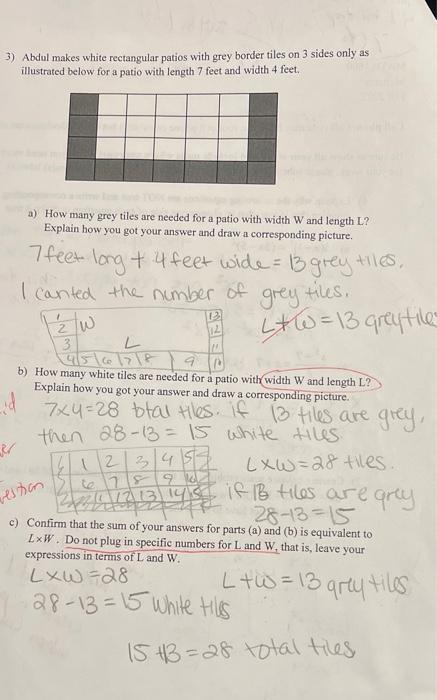 3) Abdul makes white rectangular patios with grey border tiles on 3 sides only as
illustrated below for a patio with length 7 feet and width 4 feet.
a) How many grey tiles are needed for a patio with width W and length L?
Explain how you got your answer and draw a corresponding picture.
7 feet long + 4 feet wide = 13 grey tiles.
I canted the number of grey tiles.
L+W = 13 grey tile
1 2 3 4 5 6 7 8 9 10 11 12 13 W L
b) How many white tiles are needed for a patio with width W and length L?
Explain how you got your answer and draw a corresponding picture.
7x4=28 total tiles. if 13 tiles are grey,
then 28-13 = 15 white tiles
1 2 3 4 5
6 7 8 9 10
11 12 13 14 15
LxW=28 tiles.
if 13 tiles are grey
28-13=15
c) Confirm that the sum of your answers for parts (a) and (b) is equivalent to
L×W. Do not plug in specific numbers for L and W, that is, leave your
expressions in terms of L and W.
LxW=28
L+W=13 grey tiles
28-13=15 white tiles
15+13=28 total tiles